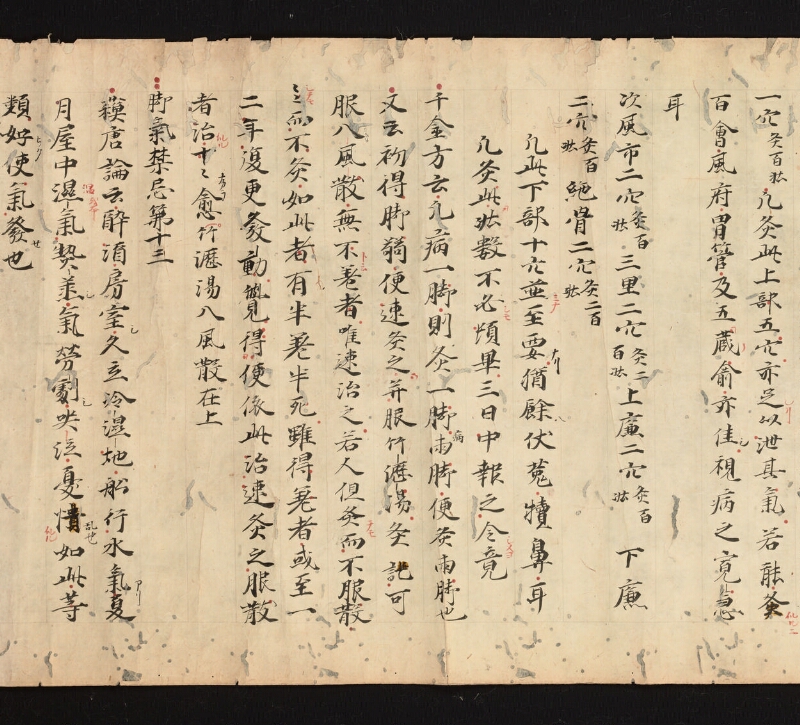 一穴灸百壮凡灸此上部五穴亦足以泄其氣若能灸
百會風府胃管及五蔵俞亦佳視病之寛急
耳
次風市二穴灸百壮三里二穴灸二百壮上廉二穴灸百壮下廉
二穴灸百壮絶骨二穴灸二百壮
凡此下部十穴並至要猶餘伏菟犢鼻耳
凡灸此壮數不必頓畢三日中報之令竟
千金方云凡病一脚則灸一脚病兩脚便灸兩脚也
又云初得脚弱便速灸之并服竹瀝湯灸訖可
服八風散無不差者唯速治之若人但灸而不服散
而不灸如此者有半差半死雖得差者或至一
二年復更發動覺得便依此治速灸之服散
者治十十愈竹瀝湯八風散在上
脚氣禁忌第十三
蘓唐論云醉酒房室久立冷濕地船行水氣夏
月屋中濕氣勢蒸氣勞劇哭泣憂憒如此等
類好使氣發也